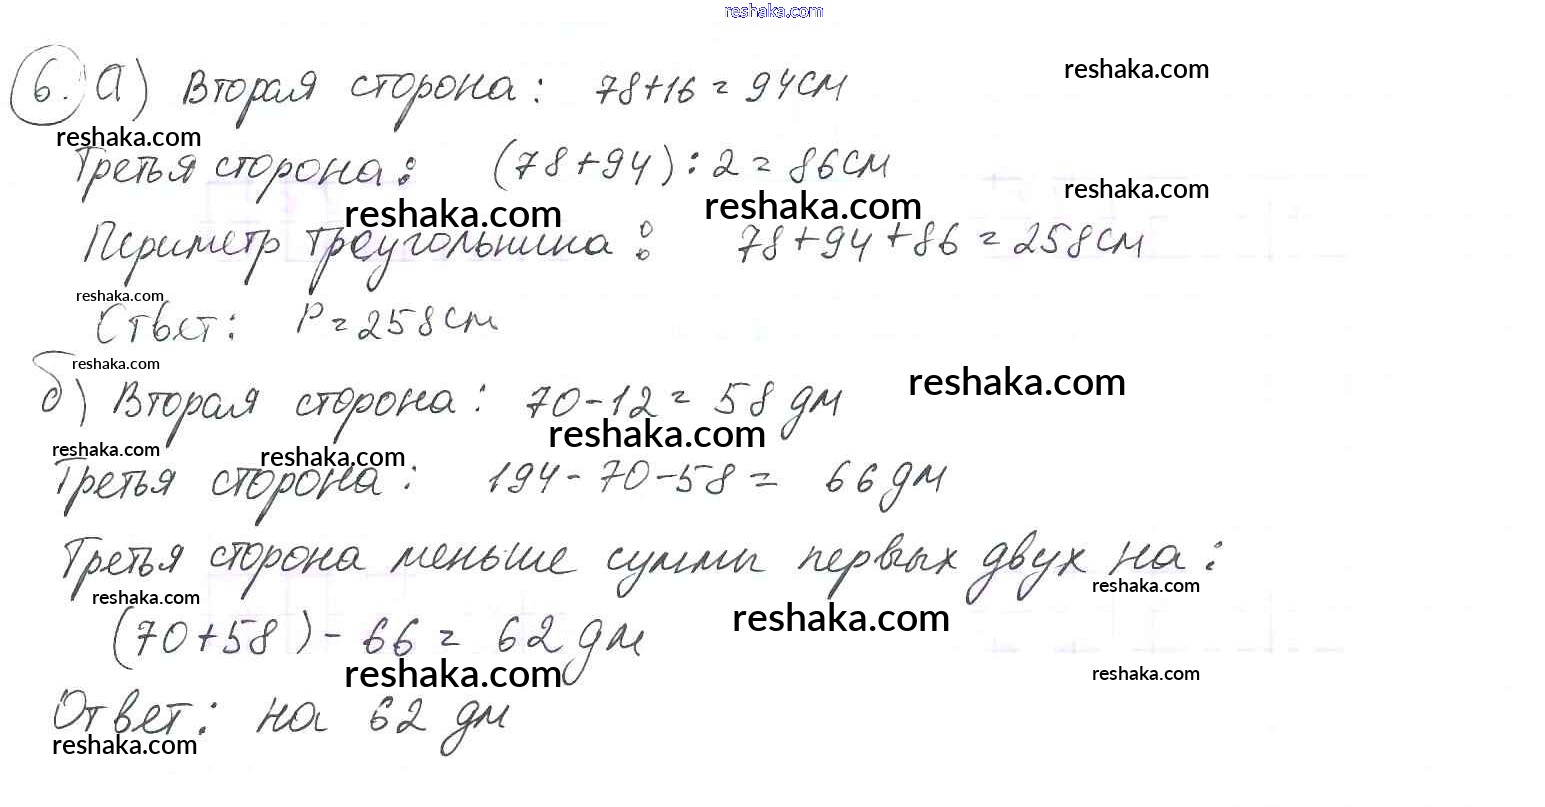 reshaka.com
6. а) Вторая сторона: 78+16=94см reshaka.com
reshaka.com
Третья сторона: (78+94):2=86см
reshaka.com
reshaka.com reshaka.com
Периметр треугольника: 78+94+86=258см
reshaka.com
Ответ: P=258см
reshaka.com
б) Вторая сторона: 70-12=58 дм reshaka.com
reshaka.com
reshaka.com reshaka.com
Третья сторона: 194-70-58= 66 дм
Третья сторона меньше суммы первых двух на:
reshaka.com reshaka.com
(70+58)-66= 62 дм reshaka.com
reshaka.com reshaka.com
Ответ: на 62 дм
reshaka.com